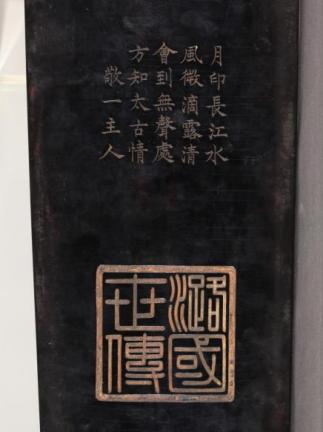 月印長江水
風微滴露清
會到無聲處
方知太古情
敬一主人
潞國世傳